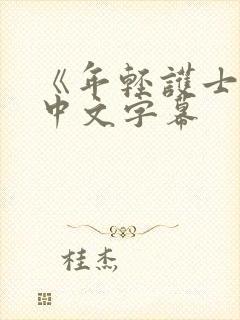 《年轻護士
中文字幕
桂杰